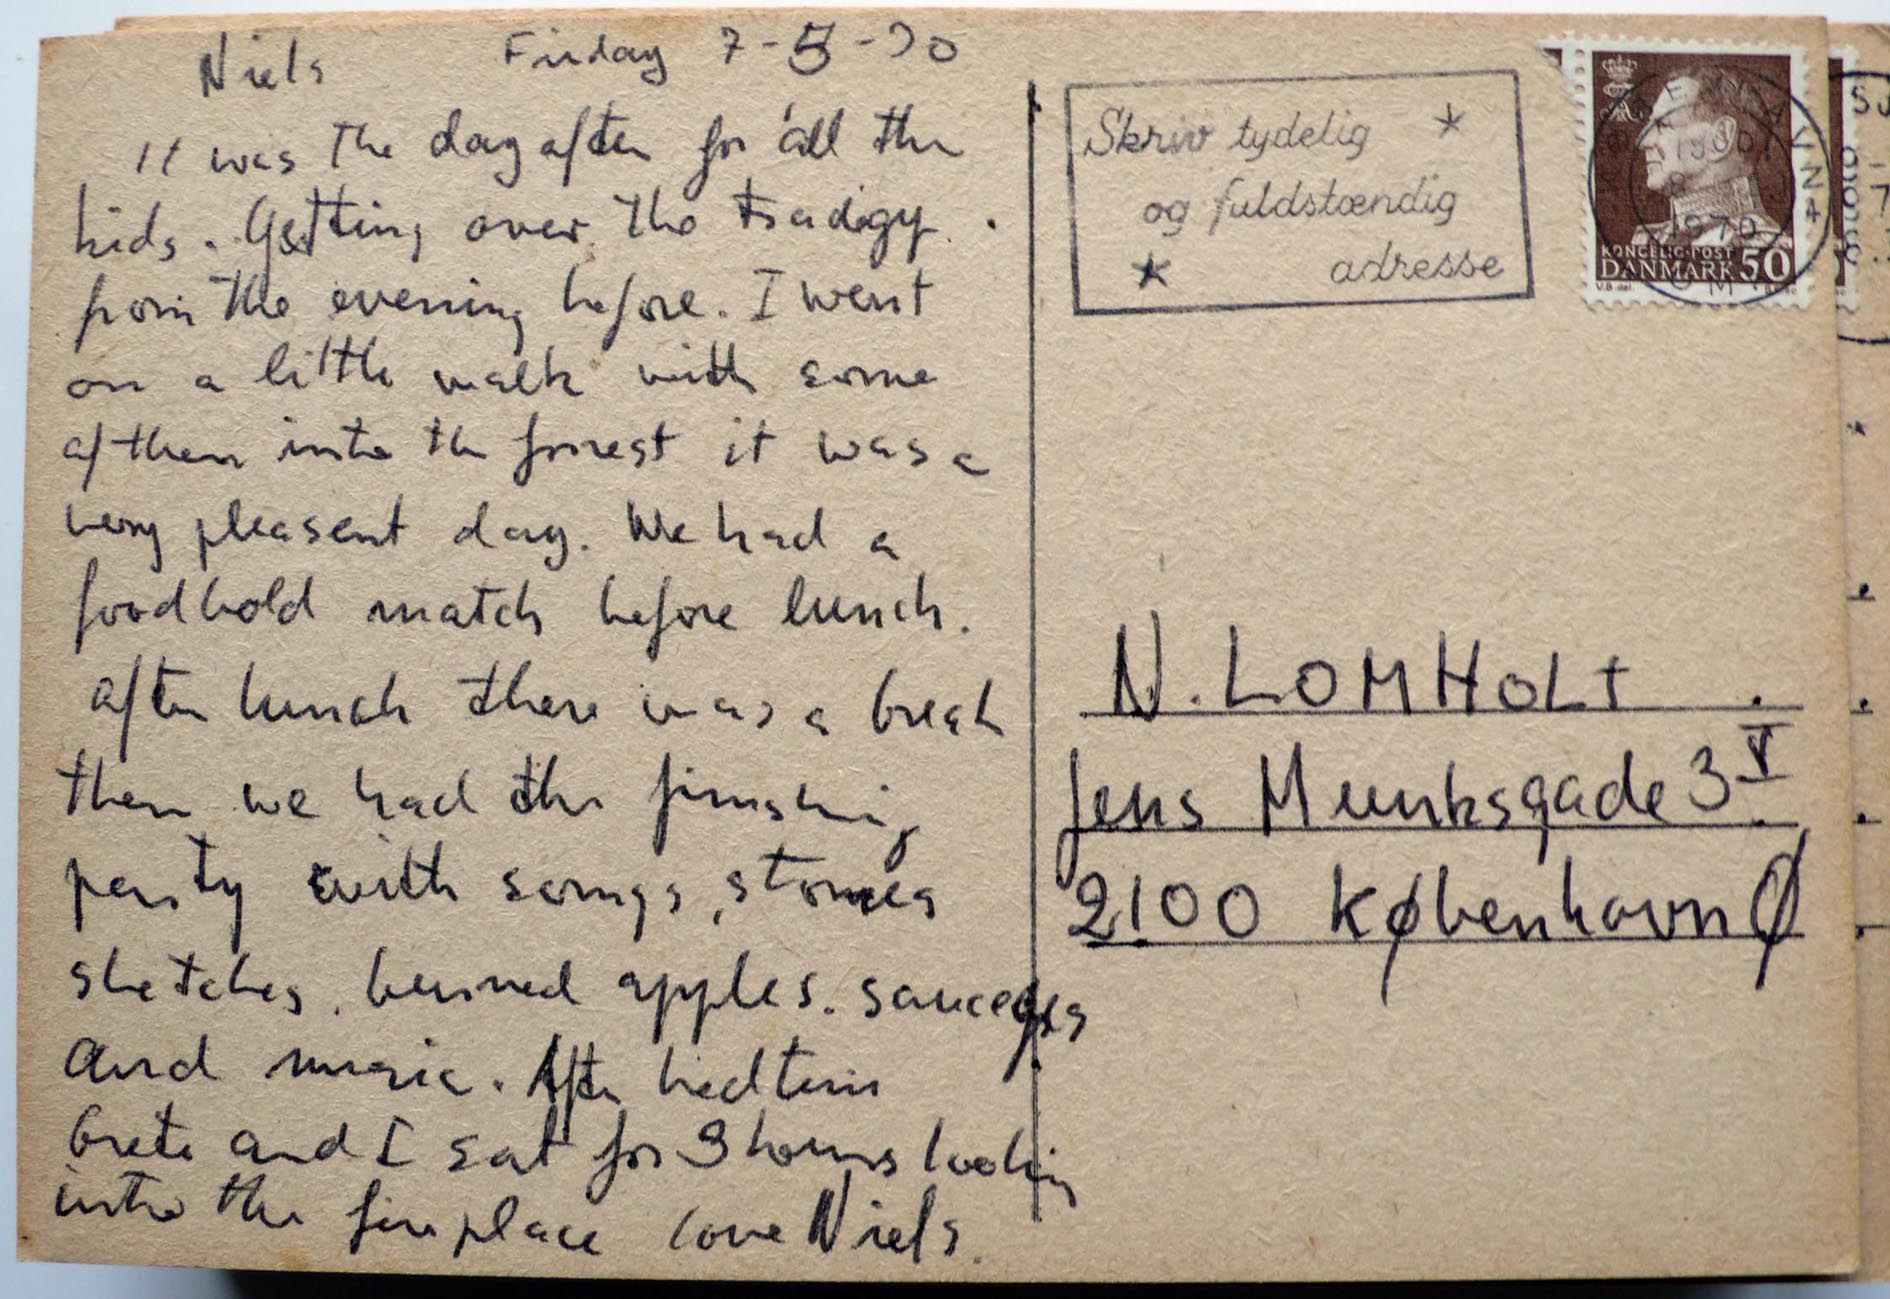 Niels Friday 7-5-70
It was the day after for all the
kids. Getting over the tradigy.
from the evening before. I went
on a little walk with some
of them into the forrest it was a
very pleasent day. We had a
foodbold match before lunch.
after lunch there was a break
then we had the finishing
party with songs, stories
sketches, burned apples. sauceges
and music. After bedtim
Grete and I sat for 3 hours looking
into the fireplace love Niels.
Skriv tydelig *
og fuldstændig
* adresse
KONGELIG POST
DANMARK 50
1970
N. LOMHOLT
Jens Munksgade 3 V
2100 København Ø